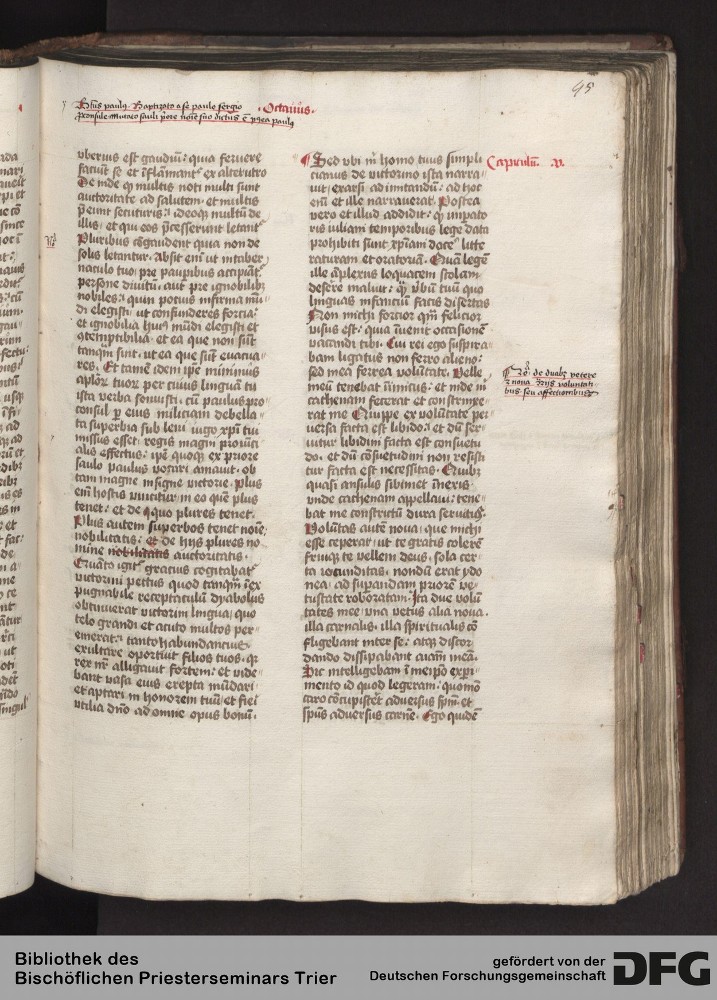 95
Octauus.
vberius est gaudiū: quia feruere
faciūt se et īflāmant᷑ ex alterutro
De inde qꝫ multis noti multi sunt
auctoritate ad salutem et multis
p̄eunt secuturis: ideoqꝫ multū de
illis et qui eos p̄cesserunt letant᷑
Pluribus cōgaudent quia non de
solis letantur. Absit em̄ ut in taber
naculo tuo pre paupibus accipiāt᷑
persone diuitū. aut pre ignobilibꝫ
nobiles: quin potius infirma mū
di elegisti ut confunderes forcia:
et ignobilia huiꝰ mūdi elegisti et
ꝯtemptibilia. et ea que non sūt
tanqm̄ sint. ut ea que sūt euacua
res. Et tamē idem ip̄e minimus
aplōr tuor per cuius lingua tu
ista verba sonuisti. cū paulus pro
consul p eius miliciam debella
ta superbia sub leui iugo xp̄i tui
missus esset. regis magni prouīci
alis effectus. ip̄e quoqꝫ ex priore
saulo paulus vocari amauit. ob
tam magne insigne victorie. Plus
em̄ hostis vincitur in eo quē plus
tenet. et de quo plures tenet.
Plus autem superbos tenet noīe
nobilitatis: et de hijs plures no
mine nobilitatis auctoritatis.
Quāto igit᷑ gracius cogitabat᷑
victorini pectus quod tanqm̄ īex
pugnabile receptaculū dyabolus
obtinuerat victorini lingua. quo
telo grandi et acuto multos per
emerat: tanto habundancius
exultare oportuit filios tuos. qꝛ
rex nr̄ alligauit fortem: et vide
bant vasa eius erepta mūdari
et aptari in honorem tuū et fieri
vtilia dn̄o ad omne opus bonū.
Capitulū .v.
Sed vbi m̄ homo tuus simpli
cianus de victorino ista narra
uit. exarsi ad imitandū: ad hoc
em̄ et ille narrauerat. Postea
vero et illud addidit: qꝫ impato
ris iuliani temporibus lege data
prohibiti sunt xp̄iani doce᷑ litte
raturam et oratoriā. Quā legē
ille āplexus loquacem scolam
desere maluit: qꝫ v̄bū tuū quo
linguas infanciū facis disertas
Non michi forcior qm̄ felicior
visus est: quia īuenit occasionē
vacandi tibi. Cui rei ego suspira
bam ligatus non ferro alieno:
sed mea ferrea volūtate. Velle
meū tenebat īimicus: et inde m̄
cathenam fecerat et constrinxe
rat me. Quippe ex volūtate per
uersa facta est libido: et dū ser
uitur libidini facta est consuetu
do. et dū cōsuetudini non resisti
tur facta est necessitas. Quibꝫ
quasi ansulis sibimet īnexis
vnde cathenam appellaui: tene
bat me constrictū dura seruitus
Volūtas autē nova. que michi
esse ceperat. ut te gratis colerē
fruiqꝫ te vellem deus. sola cer
ta iocunditas. nondū erat ydo
nea. ad supandam priorē ve
tustate roboratam. Ita due volū
tates mee. vna vetus alia noua.
illa carnalis. illa spiritualis cō
fligebant inter se: atqꝫ discor
dando dissipabant aīam meā.
Sic intelligebam ī meip̄o expi
mento id quod legeram. quomō
caro cōcupisteret aduersus spm̄ et
spūs aduersus carnē. Ego quidē
de duabꝫ vetere
Bibliothek des
Bischöflichen Priesterseminars Trier
gefördert von der
Deutschen Forschungsgemeinschaft
DFG